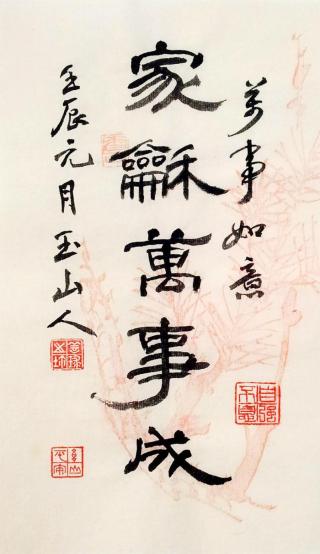 萬事如意
家龢萬事成
壬辰元月玉山人
自強不息